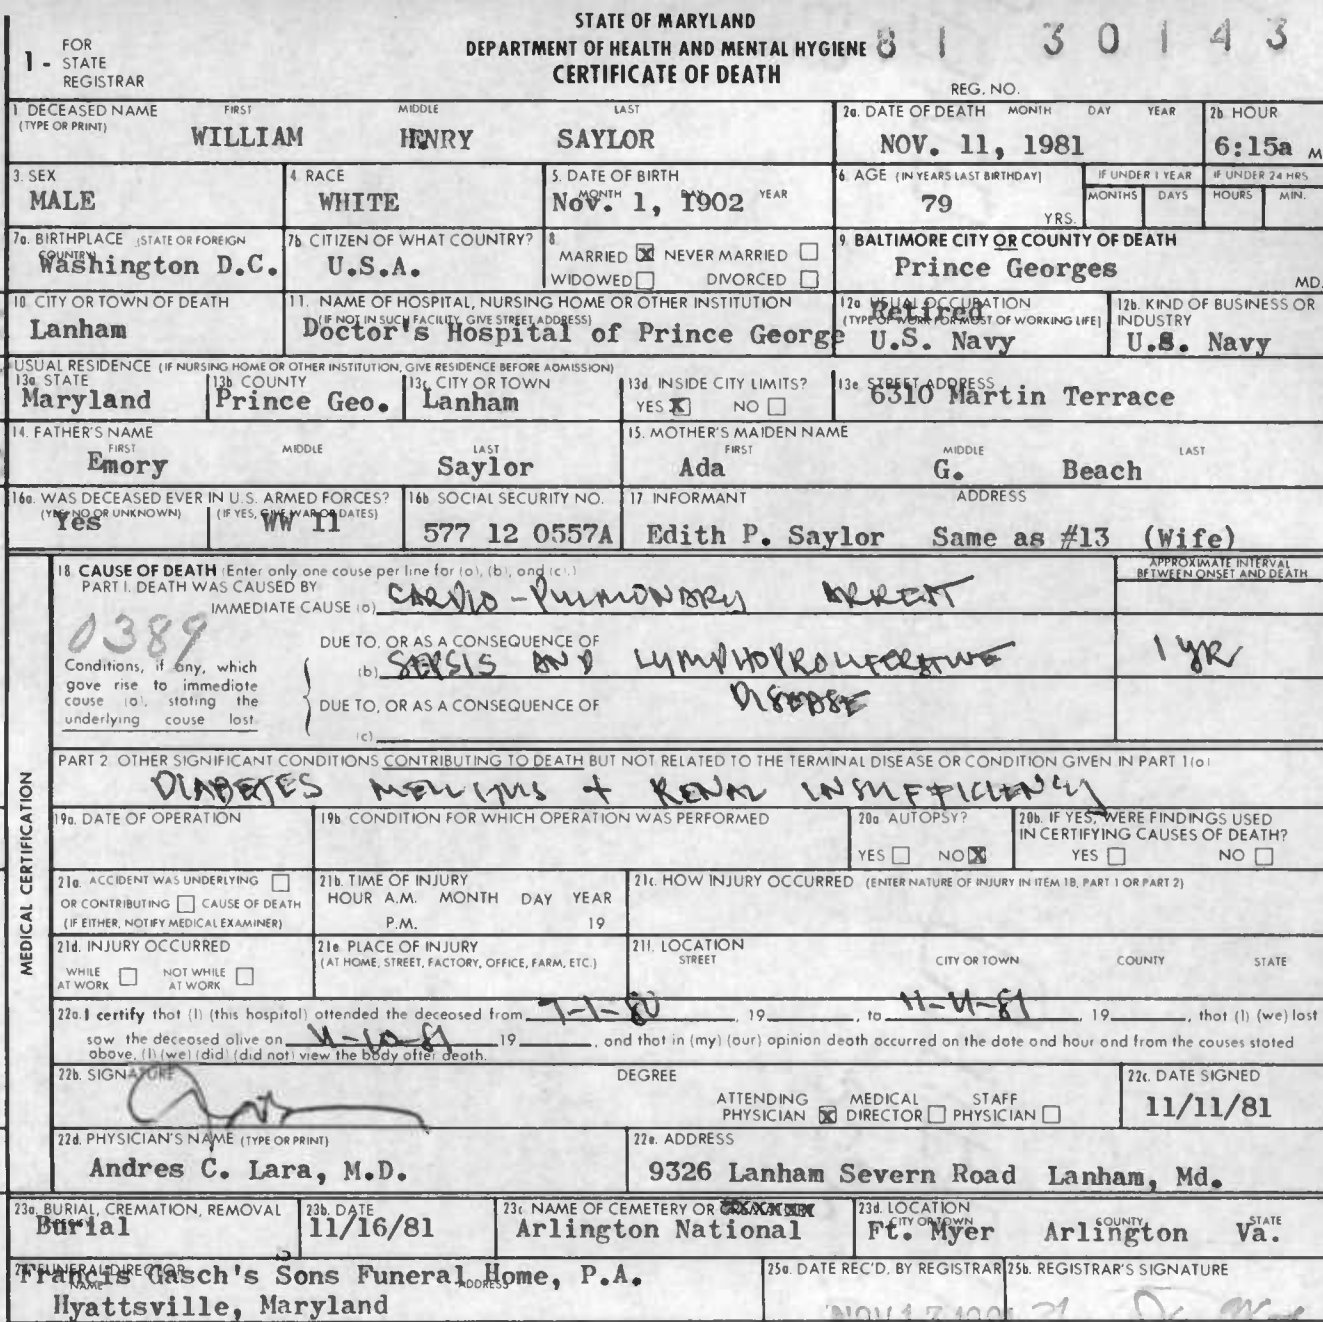 STATE OF MARYLAND
DEPARTMENT OF HEALTH AND MENTAL HYGIENE 81 30143
CERTIFICATE OF DEATH
1 - FOR STATE REGISTRAR
REG. NO.
1 DECEASED NAME (TYPE OR PRINT) FIRST MIDDLE LAST
WILLIAM HENRY SAYLOR
2a. DATE OF DEATH MONTH DAY YEAR
NOV. 11, 1981
2b HOUR
6:15a M
3. SEX
MALE
4. RACE
WHITE
5. DATE OF BIRTH MONTH DAY YEAR
Nov. 1, 1902
6. AGE (IN YEARS LAST BIRTHDAY)
79 YRS.
IF UNDER 1 YEAR MONTHS DAYS
IF UNDER 24 HRS HOURS MIN.
7a. BIRTHPLACE (STATE OR FOREIGN COUNTRY)
Washington D.C.
7b CITIZEN OF WHAT COUNTRY?
U.S.A.
8
MARRIED X NEVER MARRIED
WIDOWED DIVORCED
9 BALTIMORE CITY OR COUNTY OF DEATH
Prince Georges MD.
10. CITY OR TOWN OF DEATH
Lanham
11. NAME OF HOSPITAL, NURSING HOME OR OTHER INSTITUTION
(IF NOT IN SUCH FACILITY, GIVE STREET ADDRESS)
Doctor's Hospital of Prince George
12a USUAL OCCUPATION
(TYPE OF WORK FOR MOST OF WORKING LIFE)
Retired
U.S. Navy
12b. KIND OF BUSINESS OR INDUSTRY
U.S. Navy
USUAL RESIDENCE (IF NURSING HOME OR OTHER INSTITUTION, GIVE RESIDENCE BEFORE ADMISSION)
13a STATE
Maryland
13b COUNTY
Prince Geo.
13c CITY OR TOWN
Lanham
13d INSIDE CITY LIMITS?
YES X NO
13e STREET ADDRESS
6310 Martin Terrace
14. FATHER'S NAME FIRST MIDDLE LAST
Emory Saylor
15. MOTHER'S MAIDEN NAME FIRST MIDDLE LAST
Ada G. Beach
16a. WAS DECEASED EVER IN U.S. ARMED FORCES?
(YES, NO OR UNKNOWN) (IF YES, GIVE WAR OR DATES)
Yes WW 11
16b SOCIAL SECURITY NO.
577 12 0557A
17 INFORMANT ADDRESS
Edith P. Saylor Same as #13 (Wife)
18 CAUSE OF DEATH (Enter only one cause per line for (a), (b), and (c).)
APPROXIMATE INTERVAL BETWEEN ONSET AND DEATH
PART I. DEATH WAS CAUSED BY
IMMEDIATE CAUSE (a) CARDIO-PULMONARY ARREST
0389
Conditions, if any, which gave rise to immediate cause (a), stating the underlying cause last
DUE TO, OR AS A CONSEQUENCE OF
(b) SEPSIS AND LYMPHOPROLIFERATIVE DISEASE 1 YR
DUE TO, OR AS A CONSEQUENCE OF
(c)
PART 2 OTHER SIGNIFICANT CONDITIONS CONTRIBUTING TO DEATH BUT NOT RELATED TO THE TERMINAL DISEASE OR CONDITION GIVEN IN PART 1(a)
DIABETES MELLITUS + RENAL INSUFFICIENCY
MEDICAL CERTIFICATION
19a. DATE OF OPERATION
19b CONDITION FOR WHICH OPERATION WAS PERFORMED
20a AUTOPSY?
YES NO X
20b. IF YES, WERE FINDINGS USED IN CERTIFYING CAUSES OF DEATH?
YES NO
21a. ACCIDENT WAS UNDERLYING
OR CONTRIBUTING CAUSE OF DEATH
(IF EITHER, NOTIFY MEDICAL EXAMINER)
21b. TIME OF INJURY
HOUR A.M. MONTH DAY YEAR
P.M. 19
21c. HOW INJURY OCCURRED (ENTER NATURE OF INJURY IN ITEM 18, PART 1 OR PART 2)
21d. INJURY OCCURRED
WHILE AT WORK NOT WHILE AT WORK
21e PLACE OF INJURY
(AT HOME, STREET, FACTORY, OFFICE, FARM, ETC.)
21f. LOCATION
STREET CITY OR TOWN COUNTY STATE
22a. I certify that (I) (this hospital) attended the deceased from 7-1-80, 19 , to 11-11-81, 19 , that (I) (we) lost
saw the deceased alive on 11-10-81 19 , and that in (my) (our) opinion death occurred on the date and hour and from the causes stated
above, (I) (we) (did) (did not) view the body after death.
22b. SIGNATURE DEGREE
ATTENDING PHYSICIAN X MEDICAL DIRECTOR STAFF PHYSICIAN
22c. DATE SIGNED
11/11/81
22d. PHYSICIAN'S NAME (TYPE OR PRINT)
Andres C. Lara, M.D.
22e. ADDRESS
9326 Lanham Severn Road Lanham, Md.
23a. BURIAL, CREMATION, REMOVAL
Burial
23b. DATE
11/16/81
23c NAME OF CEMETERY OR
Arlington National
23d. LOCATION CITY OR TOWN COUNTY STATE
Ft. Myer Arlington Va.
24 FUNERAL DIRECTOR NAME ADDRESS
Francis Gasch's Sons Funeral Home, P.A.
Hyattsville, Maryland
25a. DATE REC'D. BY REGISTRAR
25b. REGISTRAR'S SIGNATURE